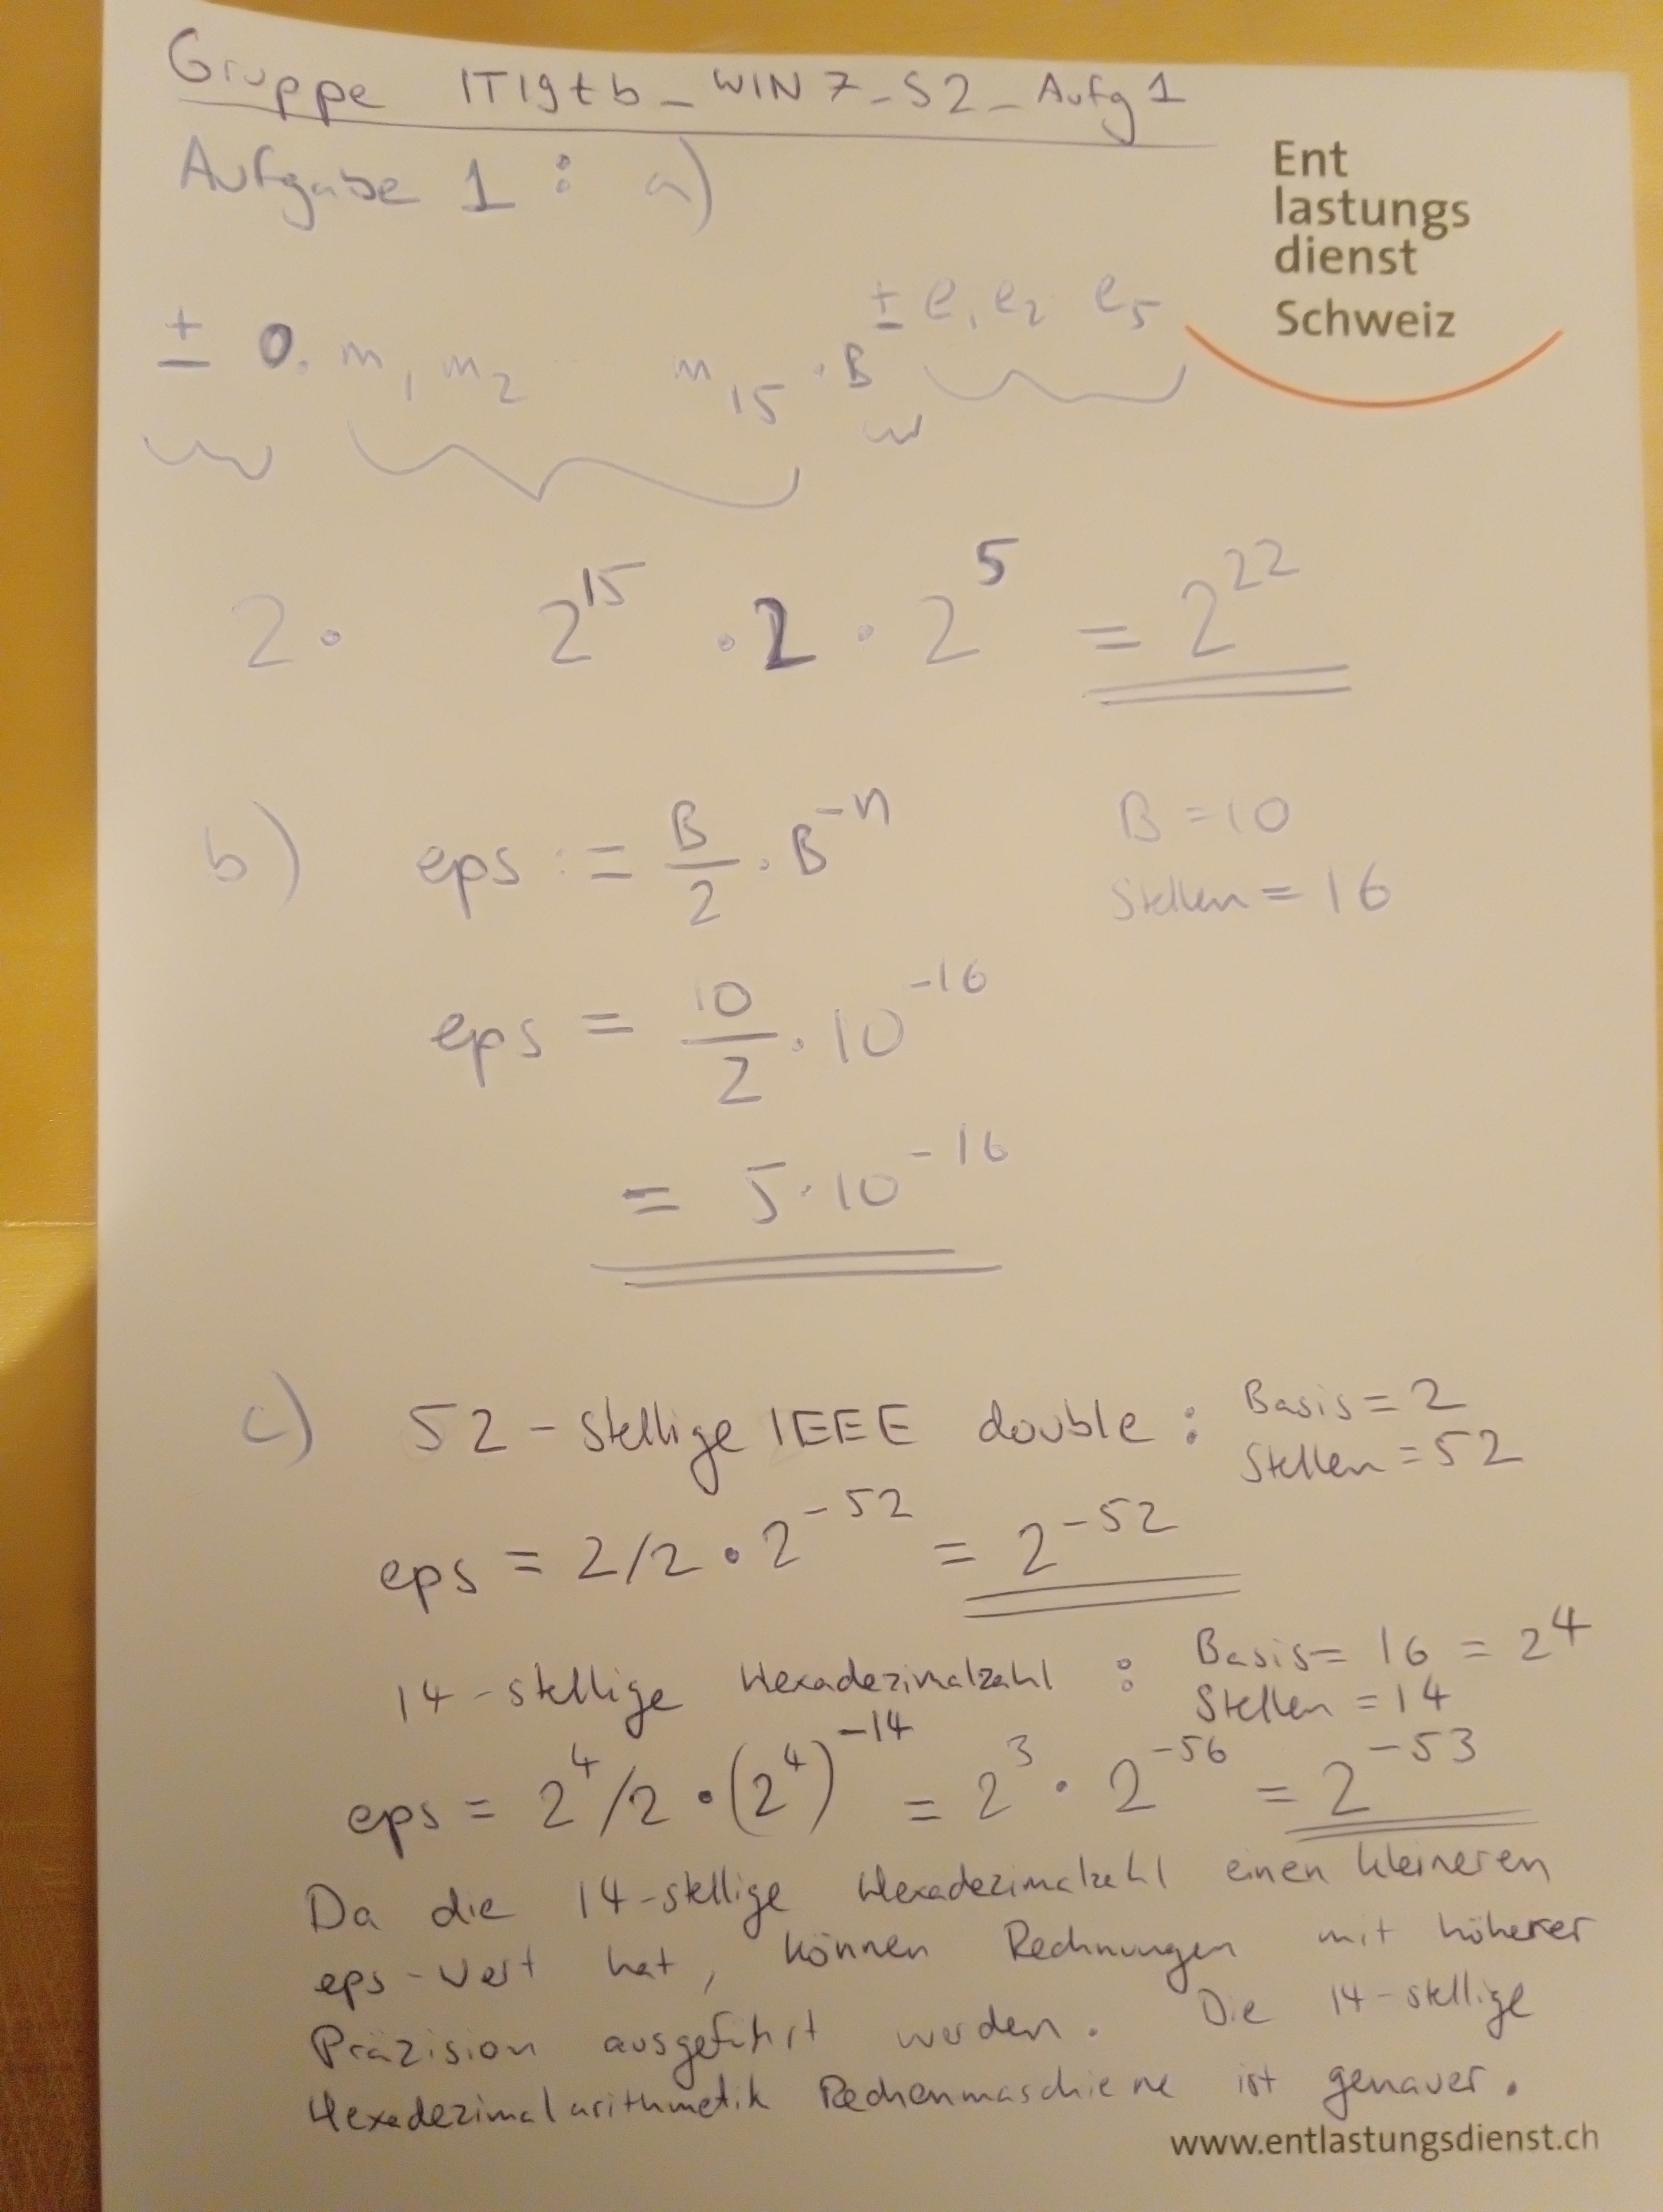 Gruppe IT19tb_WIN7_S2_Aufg1
Aufgabe 1 : a)
Ent
lastungs
dienst
Schweiz
± 0. m₁ m₂ ... m₁₅ · B^(± e₁ e₂ e₅)
2 · 2^15 · 2 · 2^5 = 2^22
b) eps := B/2 · B^-n
B = 10
Stellen = 16
eps = 10/2 · 10^-16
= 5 · 10^-16
c) 52-stellige IEEE double :
Basis = 2
Stellen = 52
eps = 2/2 · 2^-52 = 2^-52
14-stellige Hexadezimalzahl :
Basis = 16 = 2^4
Stellen = 14
eps = 2^4/2 · (2^4)^-14 = 2^3 · 2^-56 = 2^-53
Da die 14-stellige Hexadezimalzahl einen kleineren
eps-Wert hat, können Rechnungen mit höherer
Präzision ausgeführt werden. Die 14-stellige
Hexadezimalarithmetik Rechenmaschiene ist genauer.
www.entlastungsdienst.ch